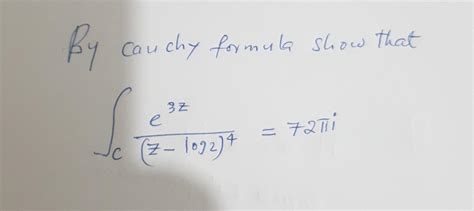 By cauchy formula show that
∫_C e^{3z} / (z - log2)^4 = 72πi